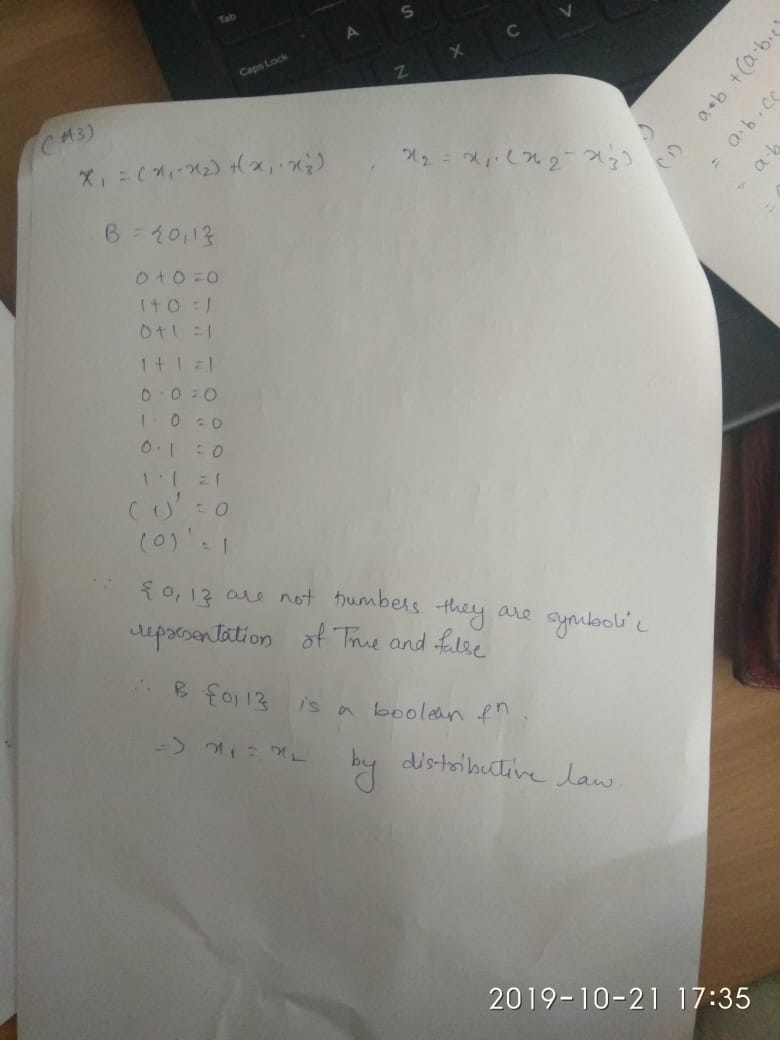 Tab
Caps Lock
A
S
Z
X
C
V
(A3)
x₁ = (x₁·x₂) + (x₁·x₃') , x₂ = x₁·(x₂ - x₃')
B = {0,1}
0+0=0
1+0=1
0+1=1
1+1=1
0·0=0
1·0=0
0·1=0
1·1=1
(1)'=0
(0)'=1
∵ {0,1} are not numbers they are symbolic
representation of True and false
∴ B {0,1} is a boolean fⁿ.
=> x₁ = x₂ by distributive law.
a·b + (a·b·c
= a·b·cc
= a·b
=
2019-10-21 17:35